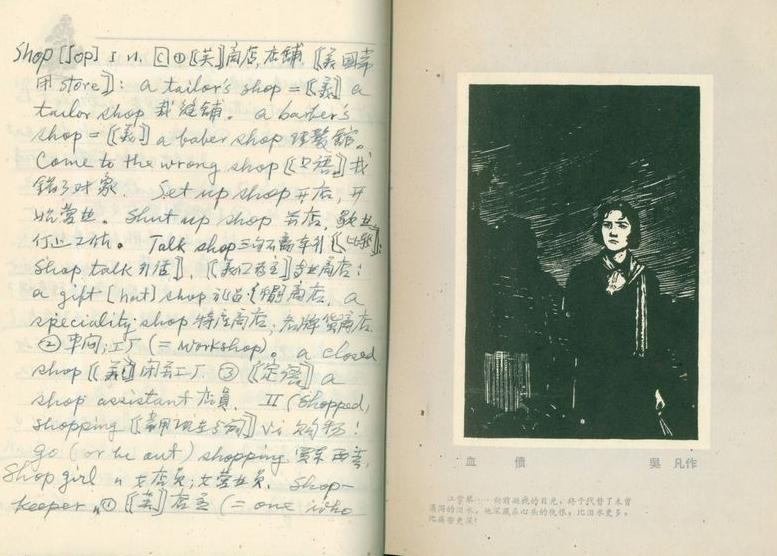 Shop [ʃɔp] I n. [C] ①〖英〗商店,店舖〖美國常
用 store〗: a tailor's shop =〖美〗a
tailor shop 裁縫舖。 a barber's
shop =〖美〗a baber shop 理髮館。
Come to the wrong shop〖口语〗找
錯了对象. Set up shop 开店,开
始营业。 Shut up shop 关店,歇业
停止工作。 Talk shop 三句不离本行
Shop talk 行话〗, 专业商店:
a gift [hat] shop 礼品〔帽〕商店. a
speciality shop 特产商店;名牌货商店
② 车间;工厂 (= workshop)。 a closed
shop〖美〗闭 工厂 ③〖定语〗a
shop assistant 店員. II (shopped,
shopping〖常用现在分词〗vi 购物!
go (or be out) shopping 買东西去,
Shop girl n 女店员;女营业员. Shop-
keeper n ①〖英〗店主 (= one who
血 債 吳 凡作
江雪琴……
滴泻的泪水,她深藏在心头的仇恨,比泪水更多,
比痛苦更深!